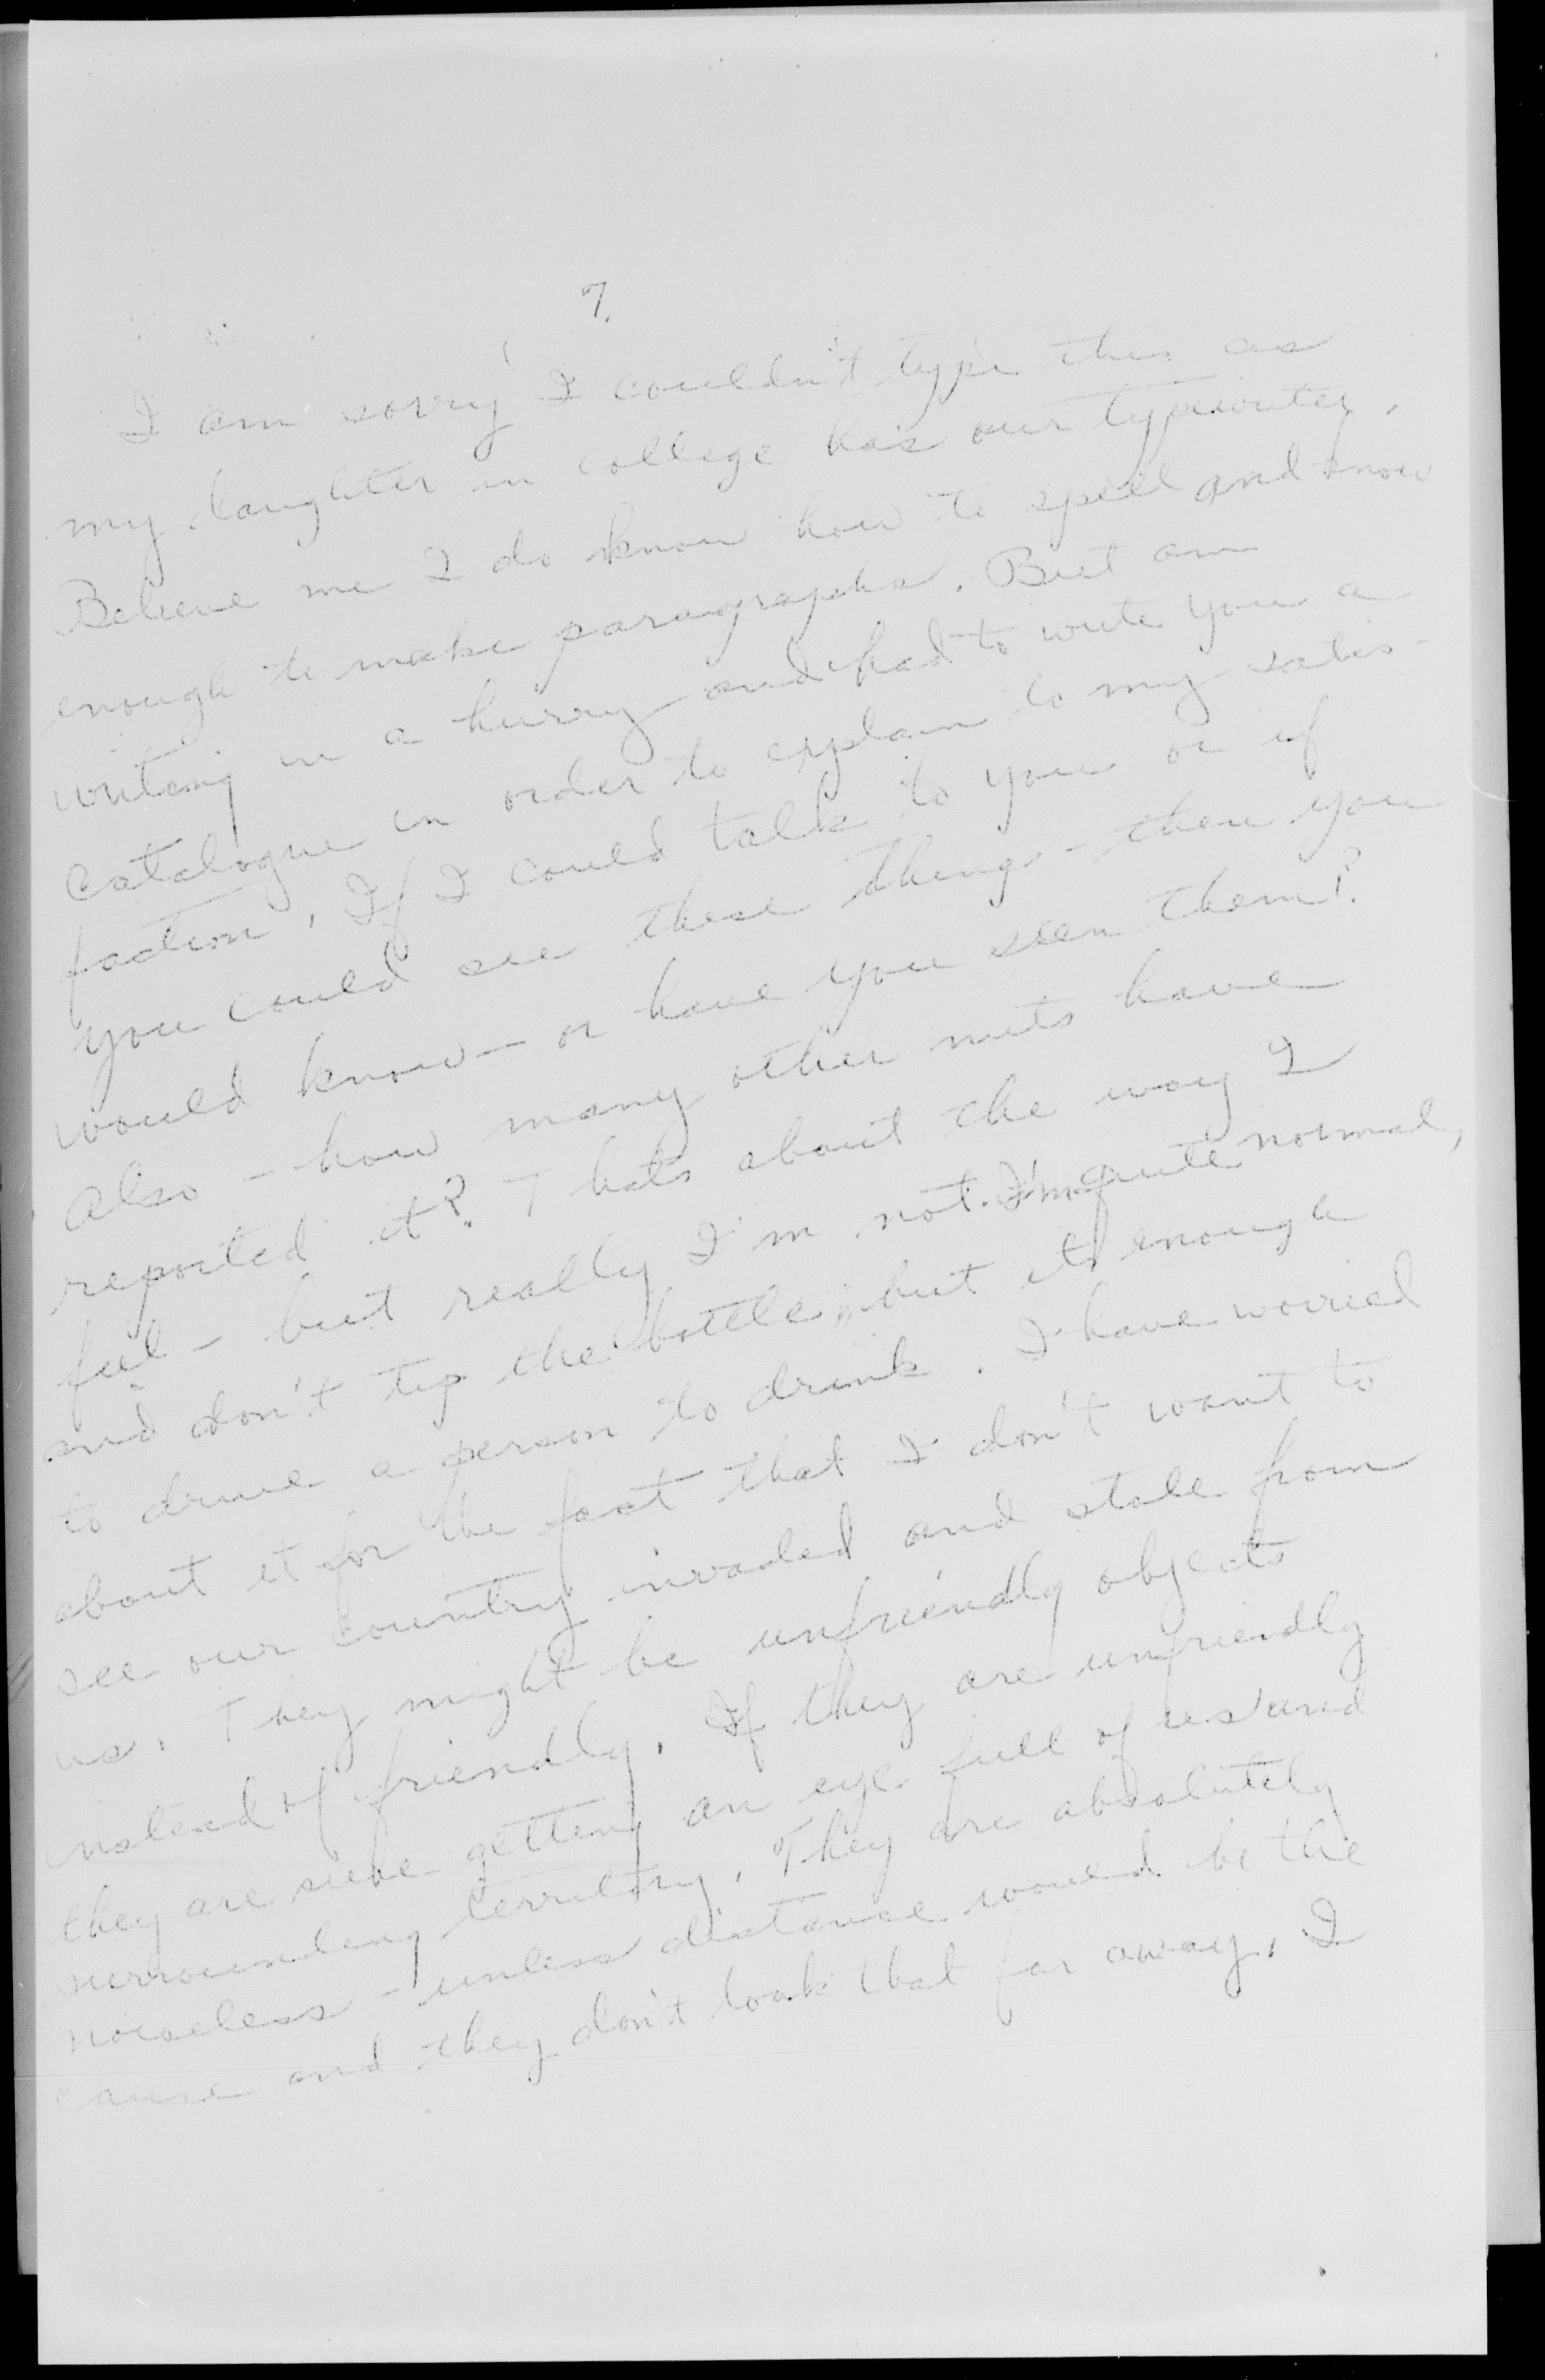 7.
I am sorry I couldn't type this as
my daughter in college has our typewriter.
Believe me I do know how to spell and know
enough to make paragraphs. But am
writing in a hurry and had to write you a
catalogue in order to explain to my satis-
faction. If I could talk to you or if
you could see these things - then you
would know - or have you seen them?
Also - how many other nuts have
reported it? Thats about the way I
feel - but really I'm not. I'm quite normal,
and don't tip the bottle, but its enough
to drive a person to drink. I have worried
about it for the fact that I don't want to
see our country invaded and stole from
us. They might be unfriendly objects
instead of friendly. If they are unfriendly
they are sure getting an eye full of us and
surrounding territory. They are absolutely
noiseless - unless distance would be the
cause and they don't look that far away. I